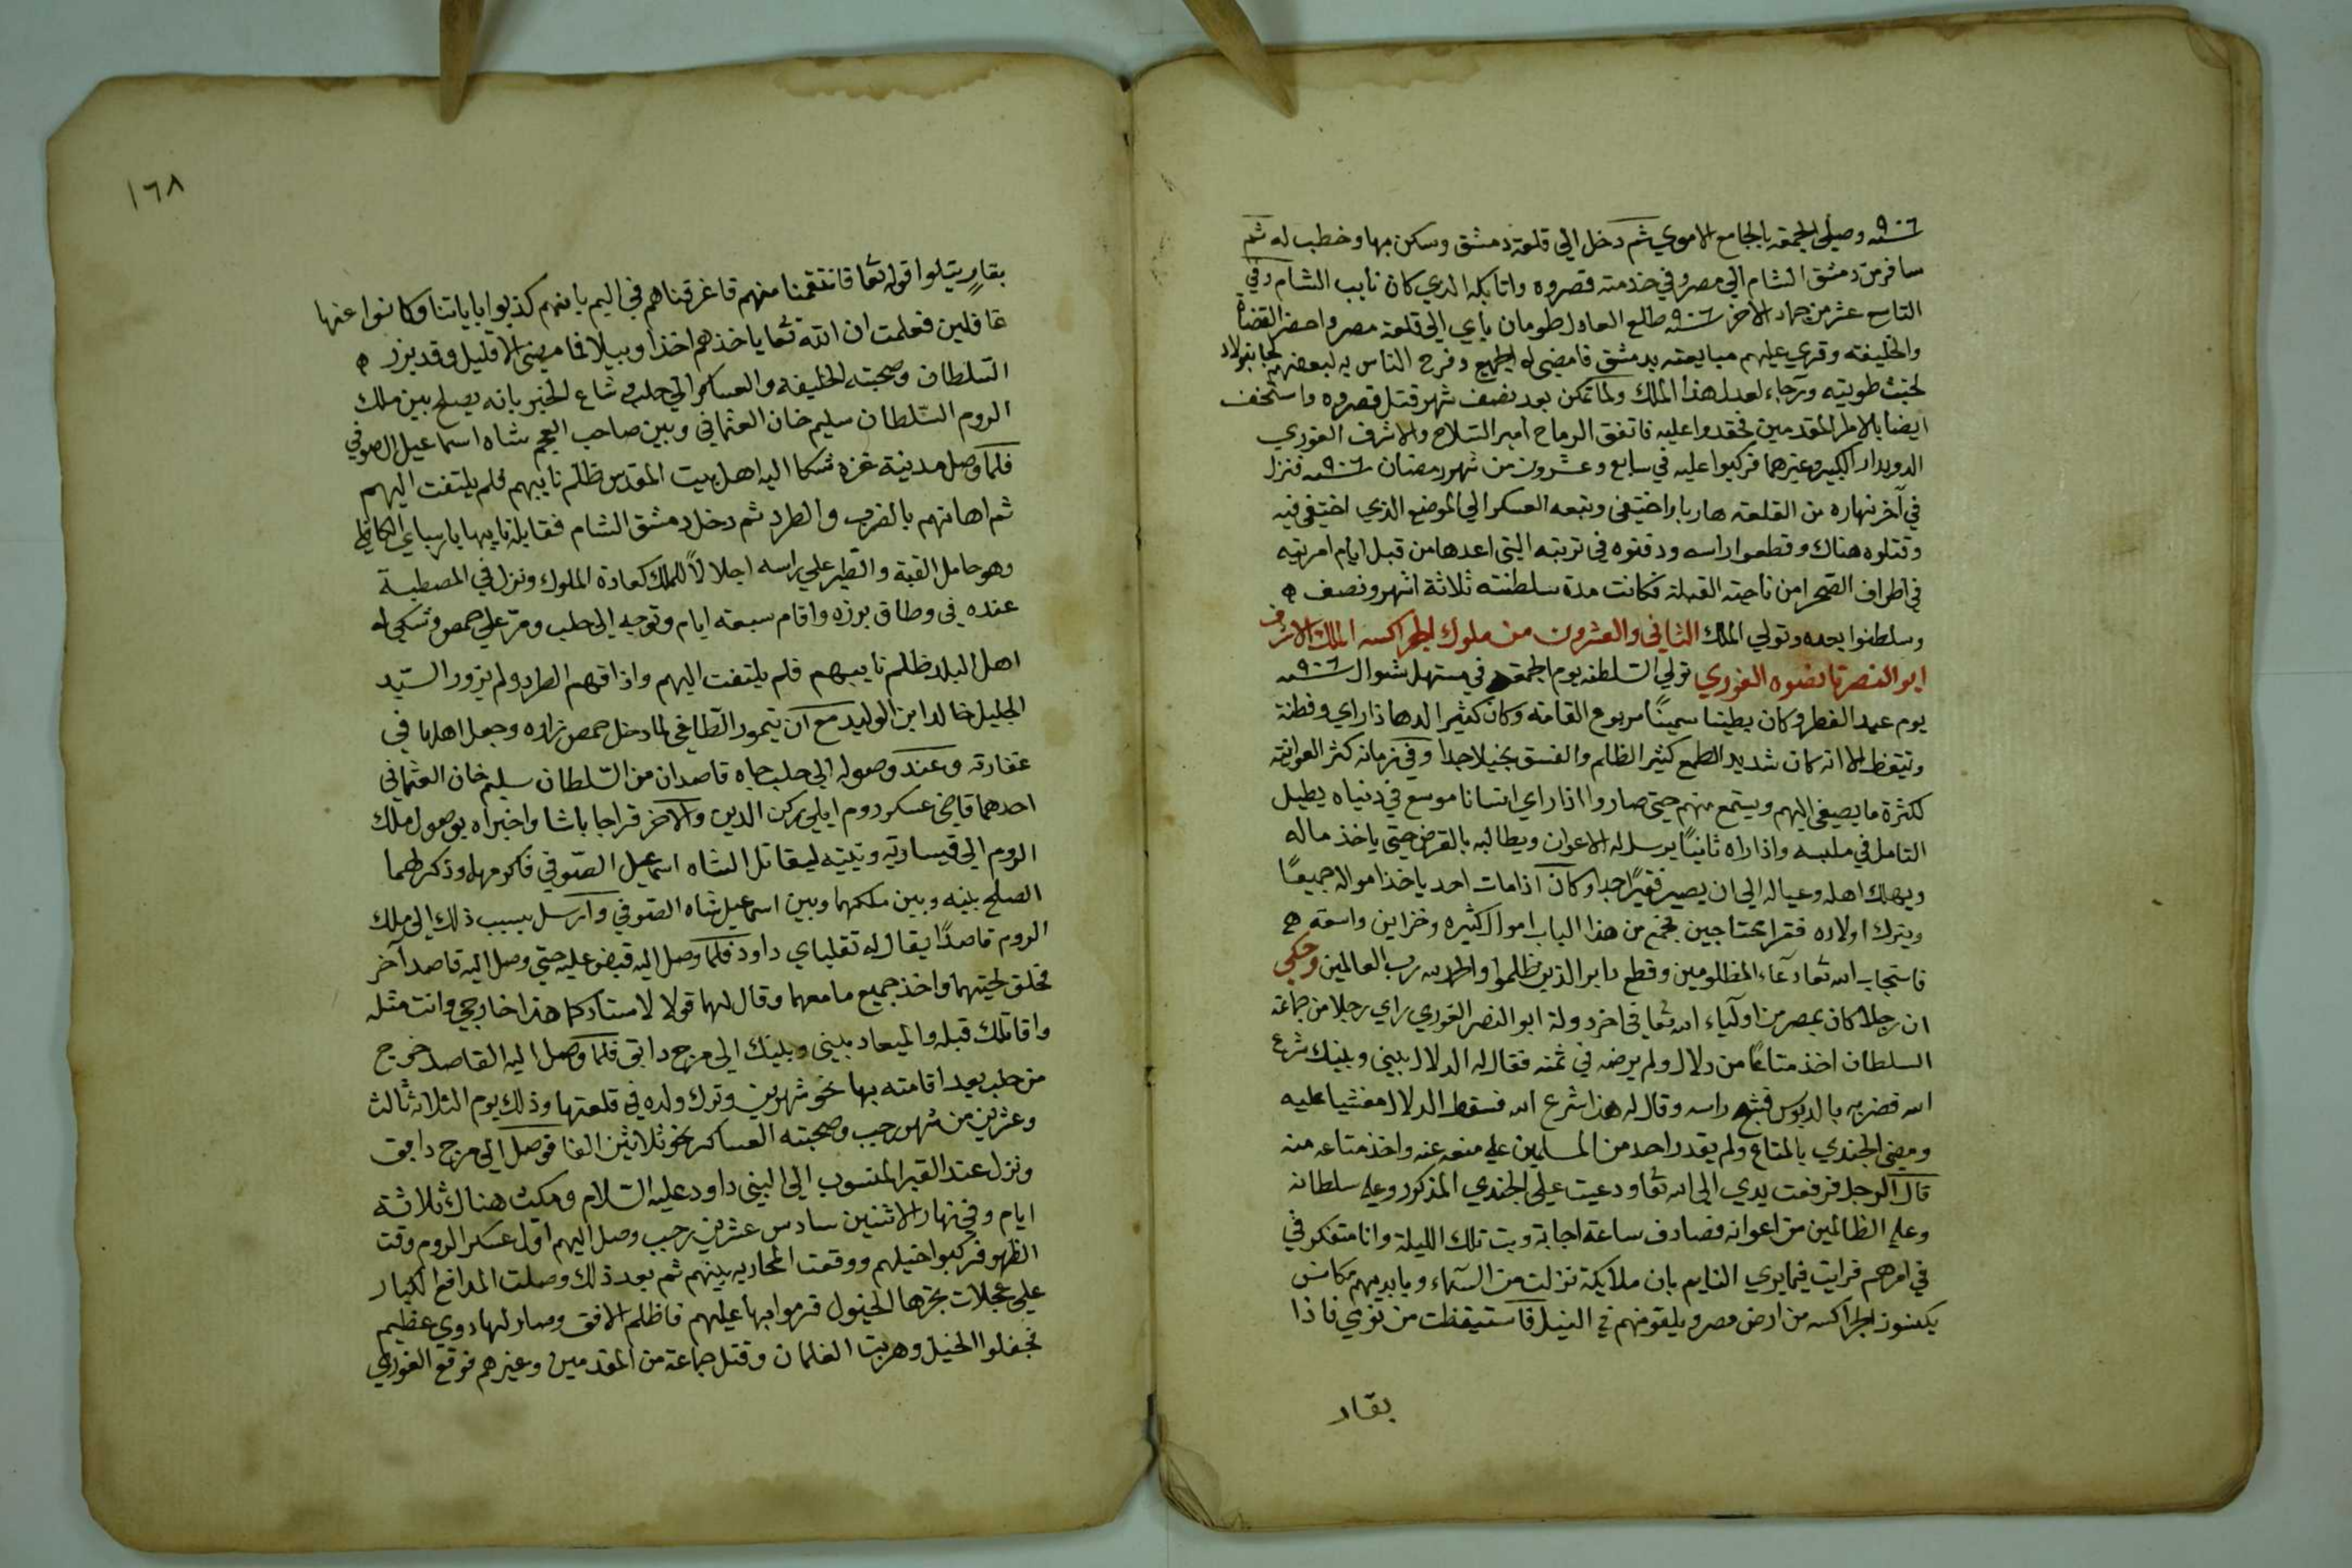 سنة ٩٠٦ وصلي الجمعة بالجامع الاموي ثم دخل الي قلعة دمشق وسكن بها وخطب له ثم
سافر من دمشق الشام الي مصر وفي خدمته قصروه واتابكه الذي كان نايب الشام وفي
التاسع عشر من جماد الاخر سنة ٩٠٦ طلع العادل طومان باي الي قلعة مصر واحضر القضاة
والخليفة وقري عليهم مبايعته بدمشق فامضي له الجميع وفرح الناس به لبعضهم لجانبولاد
لخبث طويته ورجاء لعدل هذا الملك ولما تمكن بعد نصف شهر قتل قصروه واستخف
ايضا بالامرا المقدمين فحقدوا عليه فاتفق الرماح امير السلاح والاشرف الغوري
الدويدار الكبير وغيرهما فركبوا عليه في سابع وعشرون من شهر رمضان سنة ٩٠٦ فنزل
في آخر نهاره من القلعة هاربا واختفي وتبعه العسكر الي الموضع الذي اختفي فيه
وقتلوه هناك وقطعوا راسه ودفنوه في تربته التي اعدها من قبل ايام امريته
في اطراف الصحرا من ناحية القبلة فكانت مدة سلطنته ثلاثة اشهر ونصف ه
وسلطنوا بعده وتولي الملك الثاني والعشرون من ملوك الجراكسه الملك الاشرف
ابو النصر قانصوه الغوري تولي السلطنه يوم الجمعة في مستهل شوال سنة ٩٠٦
يوم عيد الفطر وكان بطينا سمينًا مربوع القامه وكان كثير الدها ذا راي وفطنة
وتيقظ الا انه كان شديد الطمع كثير الظلم والفسق بخيلا جدا وفي زمانه كثر العوانية
لكثرة ما يصغي اليهم ويستمع منهم حتي صاروا اذا راي انسانا موسع في دنياه يطيل
التامل في ملبسه واذا راه ثانيًا يرسل له الاعوان ويطالبه بالقرض حتي ياخذ ماله
ويهلك اهله وعياله الي ان يصير فقيرًا جدا وكان اذا مات احد ياخذ امواله جميعًا
ويترك اولاده فقرا محتاجين فجمع من هذا الباب اموالا كثيره وخزاين واسعة ه
فاستجاب الله تعا دعآء المظلومين وقطع دابر الذين ظلموا والحمد لله رب العالمين وحكي
ان رجلا كان بمصر من اولياء الله تعا في اخر دولة ابو النصر الغوري راي رجلا من جماعة
السلطان اخذ متاعًا من دلال ولم يرضه في ثمنه فقال له الدلال بيني وبينك شرع
الله فضربه بالدبوس فشج راسه وقال له هذا شرع الله فسقط الدلال مغشيا عليه
ومضي الجندي بالمتاع ولم يقدر احد من المسلمين علي منعه عنه واخذ متاعه منه
قال الرجل فرفعت يدي الي الله تعا ودعيت علي الجندي المذكور وعلي سلطانه
وعلي الظالمين من اعوانه فصادف ساعة اجابة وبت تلك الليلة وانا متفكر في
في امرهم فرايت فيما يري النايم بان ملايكة نزلت من السماء وبايديهم مكانس
يكنسون الجراكسه من ارض مصر ويلقونهم في النيل فاستيقظت من نومي فاذا
بقار
١٦٨
بقارٍ يتلوا قوله تعا فانتقمنا منهم فاغرقناهم في اليم بانهم كذبوا باياتنا وكانوا عنها
غافلين فعلمت ان الله تعا ياخذهم اخذا وبيلا فما مضي الا قليل وقد برز ه
السلطان وصحبته الخليفه والعساكر الي حلب وشاع الخبر بانه يصلح بين ملك
الروم السّلطان سليم خان العثماني وبين صاحب العجم شاه اسماعيل الصوفي
فلما وصل مدينة غزه شكا اليه اهل بيت المقدس ظلم نايبهم فلم يلتفت اليهم
ثم اهانهم بالضرب والطرد ثم دخل دمشق الشام فقابله نايبها
وهو حامل القبة والطير علي راسه اجلالاً للملك كعادة الملوك ونزل في المصطبة
عنده في وطاق برزه واقام سبعة ايام وتوجه الي حلب ومر علي حمص وشكي له
اهل البلد ظلم نايبهم فلم يلتفت اليهم واذاقهم الطرد ولم يزور السيّد
الجليل خالد ابن الوليد مع ان تيمور الطاغي لما دخل حمص زاره وجعل اهلها في
عتاقه وعند وصوله الي حلب جاه قاصدان من السلطان سليم خان العثماني
احدهما قاضي عسكر روم ايلي ركن الدين والاخر قراجا باشا واخبراه بوصول ملك
الروم الي قيسارية ونيته ليقاتل الشاه اسمعيل الصوفي فاكرمهما وذكر لهما
الصلح بينه وبين ملكهما وبين اسماعيل شاه الصوفي وارسل بسبب ذلك الي ملك
الروم قاصدًا يقال له تقلباي داود فلما وصل اليه قبض عليه حتي وصل اليه قاصد آخر
فحلق لحيتهما واخذ جميع ما معهما وقال لهما قولا لاستاذكما هذا خارجي وانت مثله
واقاتلك قبله والميعاد بيني وبينك الي مرج دابق فلما وصل اليه القاصد خرج
من حلب بعد اقامته بها نحو شهرين وترك ولده في قلعتها وذلك يوم الثلاثه ثالث
وعشرين من شهر رجب وصحبته العساكر نحو ثلاثين الفا فوصل الي مرج دابق
ونزل عند القبر المنسوب الي النبي داود عليه السلام ومكث هناك ثلاثة
ايام وفي نهار الاثنين سادس عشرين رجب وصل اليهم اول عسكر الروم وقت
الظهر فركبوا خيلهم ووقعت المحاربه بينهم ثم بعد ذلك وصلت المدافع الكبار
علي عجلات تجرها الخيول فرموا بها عليهم فاظلم الافق وصار لها دوي عظيم
فجفلوا الخيل وهربت الغلمان وقتل جماعة من المقدمين وغيرهم فوقع الغوري